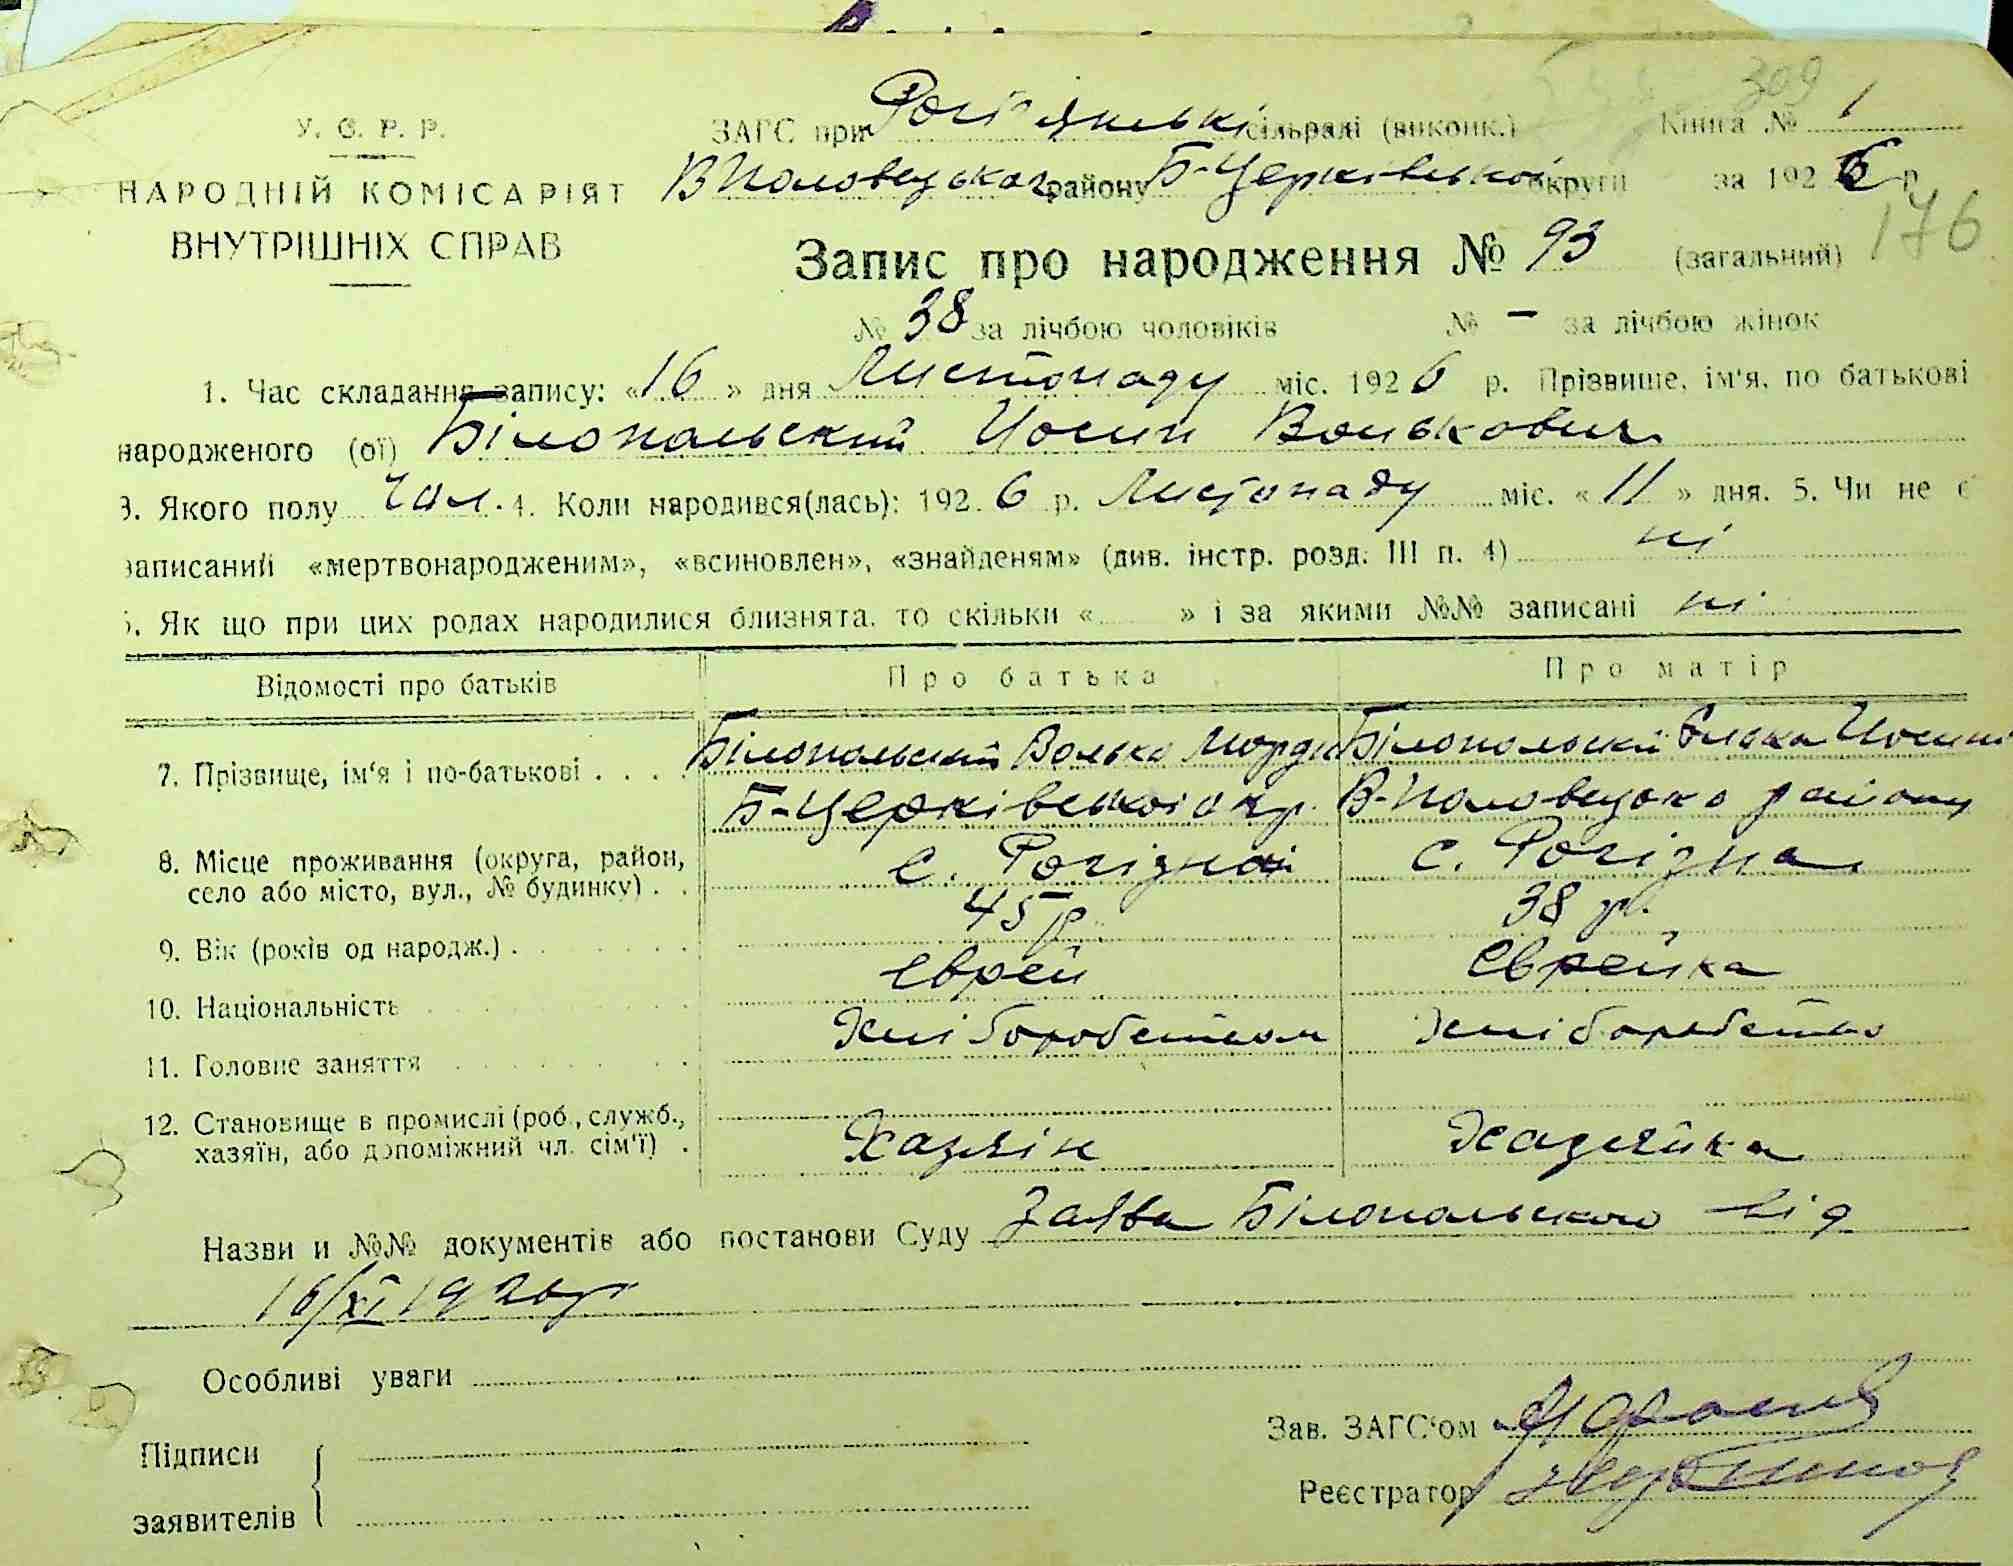 309
У. С. Р. Р.
НАРОДНІЙ КОМІСАРІЯТ
ВНУТРІШНІХ СПРАВ
ЗАГС при сільраді (виконк.) Книга № 1
В Половецького району Б-Церківської округи за 1926 р.
176
Запис про народження № 93 (загальний)
№ 38 за лічбою чоловіків № – за лічбою жінок
1. Час складання запису: «16» дня Листопаду міс. 1926 р. Прізвище, ім'я, по батькові
народженого (ої) Білопальский Йосип Волькович
3. Якого полу чол. 4. Коли народився(лась): 1926 р. Листопаду міс. «11» дня. 5. Чи не є
записаний «мертвонародженим», «всиновлен», «знайденям» (див. інстр. розд. III п. 4) ні
6. Як що при цих родах народилися близнята, то скільки « » і за якими №№ записані ні
Відомості про батьків Про батька Про матір
7. Прізвище, ім'я і по-батькові . . . . Білопальский Волько Мордк Білопольскй Йосипі
Б-Церківської окр. В-Половецько району
8. Місце проживання (округа, район,
село або місто, вул., № будинку) . . с. Рогізна с. Рогізна
9. Вік (років од народж.) . 45 р. 38 р.
10. Національність Єврей Єврейка
11. Головне заняття Хліборобством Хліборобство
12. Становище в промислі (роб., служб.,
хазяїн, або допоміжний чл. сім'ї) . Хазяїн Хазяйка
Назви и №№ документів або постанови Суду Заява Білопольского від
16/XI 1926 р
Особливі уваги
Зав. ЗАГС'ом
Підписи
Реєстратор
заявителів